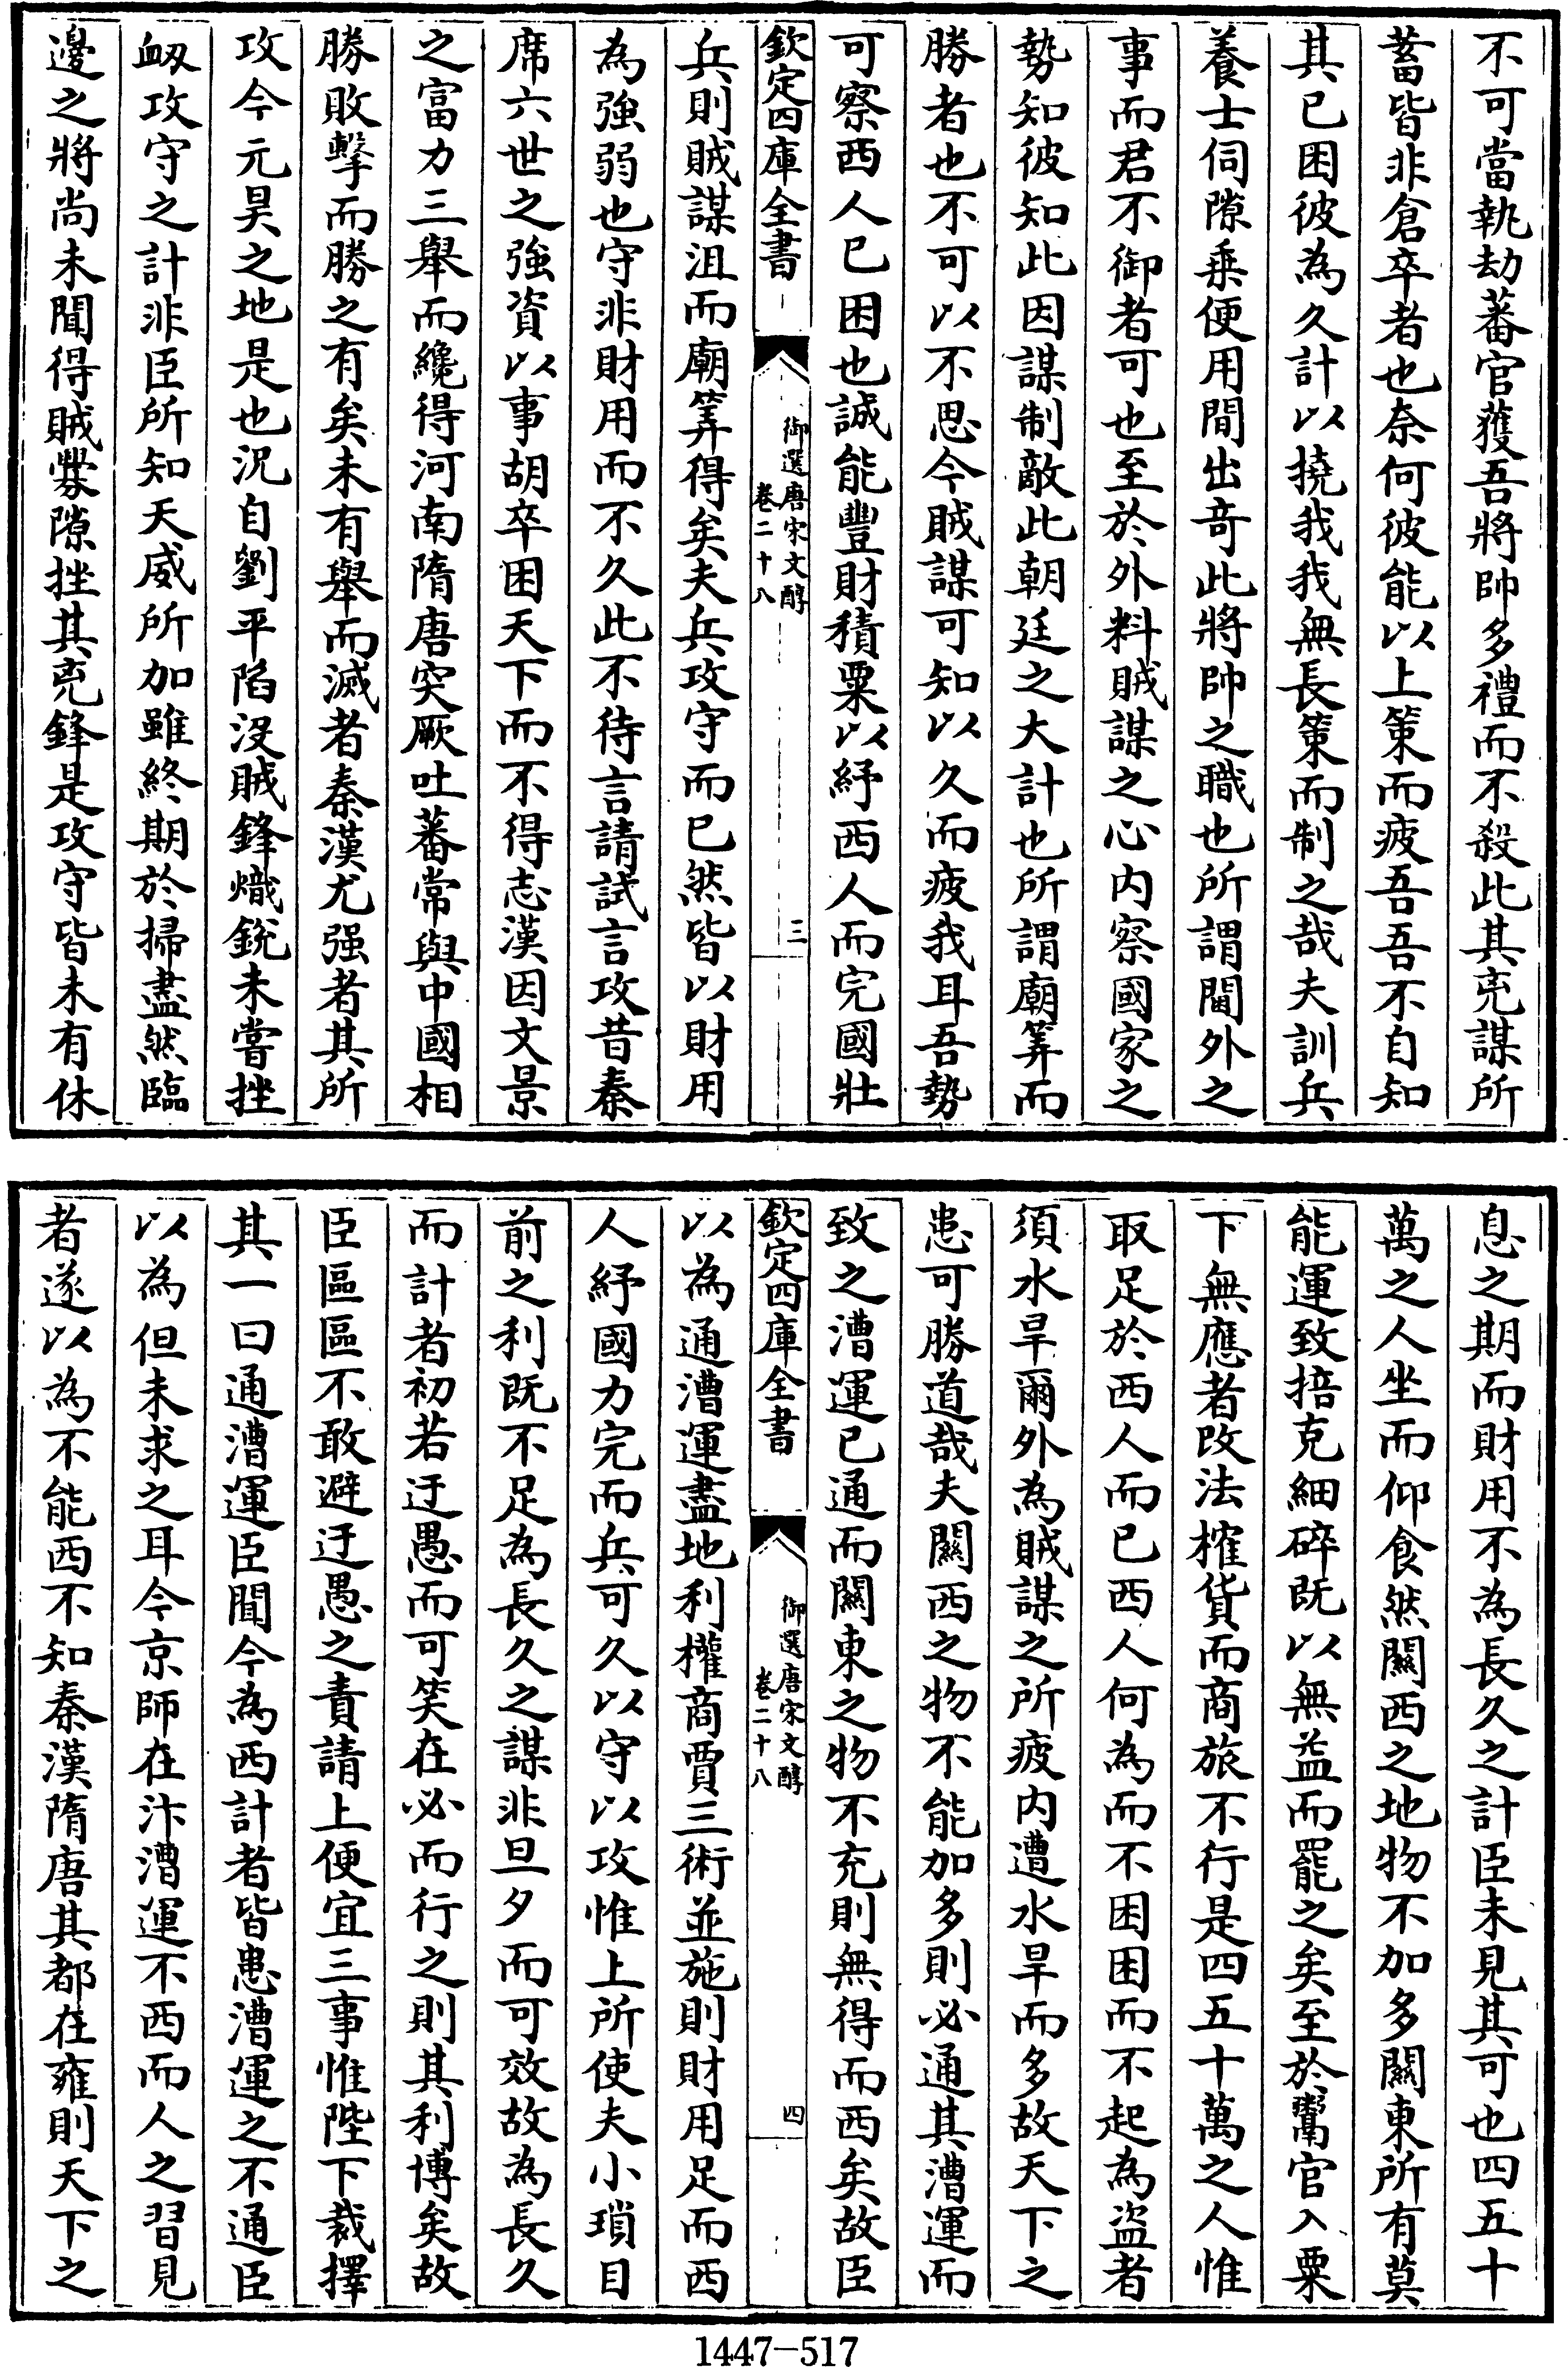 不可當執劫蕃官獲吾將帥多禮而不殺此其兇謀所
蓄皆非倉卒者也奈何彼能以上策而疲吾吾不自知
其已困彼為久計以撓我我無長策而制之哉夫訓兵
養士伺隙乗便用間出竒此將帥之職也所謂閫外之
事而君不御者可也至於外料賊謀之心内察國家之
勢知彼知此因謀制敵此朝廷之大計也所謂廟筭而
勝者也不可以不思今賊謀可知以久而疲我耳吾勢
可察西人已困也誠能豐財積粟以紓西人而完國壯
欽定四庫全書
御選唐宋文醇
卷二十八
三
兵則賊謀沮而廟筭得矣夫兵攻守而已然皆以財用
為強弱也守非財用而不久此不待言請試言攻昔秦
席六世之強資以事胡卒困天下而不得志漢因文景
之富力三舉而纔得河南隋唐突厥吐蕃常與中國相
勝敗擊而勝之有矣未有舉而滅者秦漢尤强者其所
攻今元昊之地是也況自劉平陷没賊鋒熾銳未嘗挫
衂攻守之計非臣所知天威所加雖終期於掃盡然臨
邊之將尚未聞得賊釁隙挫其兇鋒是攻守皆未有休
息之期而財用不為長久之計臣未見其可也四五十
萬之人坐而仰食然關西之地物不加多關東所有莫
能運致掊克細碎既以無益而罷之矣至於鬻官入粟
下無應者改法榷貨而商旅不行是四五十萬之人惟
取足於西人而已西人何為而不困困而不起為盜者
須水旱爾外為賊謀之所疲内遭水旱而多故天下之
患可勝道哉夫關西之物不能加多則必通其漕運而
致之漕運已通而關東之物不充則無得而西矣故臣
欽定四庫全書
御選唐宋文醇
卷二十八
四
以為通漕運盡地利權商賈三術並施則財用足而西
人紓國力完而兵可久以守以攻惟上所使夫小瑣目
前之利既不足為長久之謀非旦夕而可效故為長久
而計者初若迂愚而可笑在必而行之則其利博矣故
臣區區不敢避迂愚之責請上便宜三事惟陛下裁擇
其一曰通漕運臣聞今為西計者皆患漕運之不通臣
以為但未求之耳今京師在汴漕運不西而人之習見
者遂以為不能西不知秦漢隋唐其都在雍則天下之
1447-517